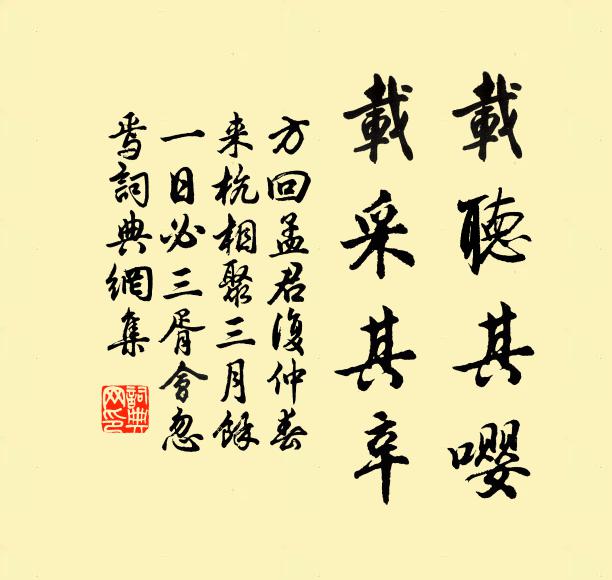 載聽其嚶
載采其辛
方回孟君復仲春
来杭相聚三月餘
一日必三胥會忽
焉詞典網集
詞典
网印